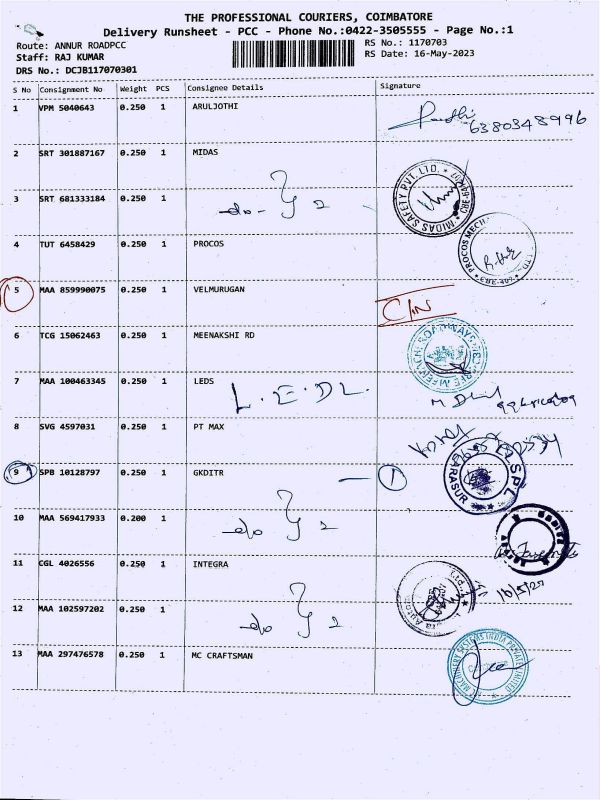 THE PROFESSIONAL COURIERS, COIMBATORE
Delivery Runsheet - PCC - Phone No.:0422-3505555 - Page No.:1
Route: ANNUR ROADPCC
RS No.: 1170703
Staff: RAJ KUMAR
RS Date: 16-May-2023
DRS No.: DCJB117070301
S No Consignment No Weight PCS Consignee Details Signature
1 VPM 5040643 0.250 1 ARULJOTHI
6380348996
2 SRT 301887167 0.250 1 MIDAS
MIDAS SAFETY PVT. LTD.
3 SRT 681333184 0.250 1 -do- } 2
4 TUT 6458429 0.250 1 PROCOS
PROCOS MECH
5 MAA 859990075 0.250 1 VELMURUGAN C/N
6 TCG 15062463 0.250 1 MEENAKSHI RD
7 MAA 100463345 0.250 1 LEDS L.E.DL.
8 SVG 4597031 0.250 1 PT MAX
9 SPB 10128797 0.250 1 GKDITR — 1
SPL
10 MAA 569417933 0.200 1 do } 2
11 CGL 4026556 0.250 1 INTEGRA
16/5/23
12 MAA 102597202 0.250 1 do } 2
13 MAA 297476578 0.250 1 MC CRAFTSMAN
MACHINERY SYSTEMS INDIA PRIVATE LIMITED